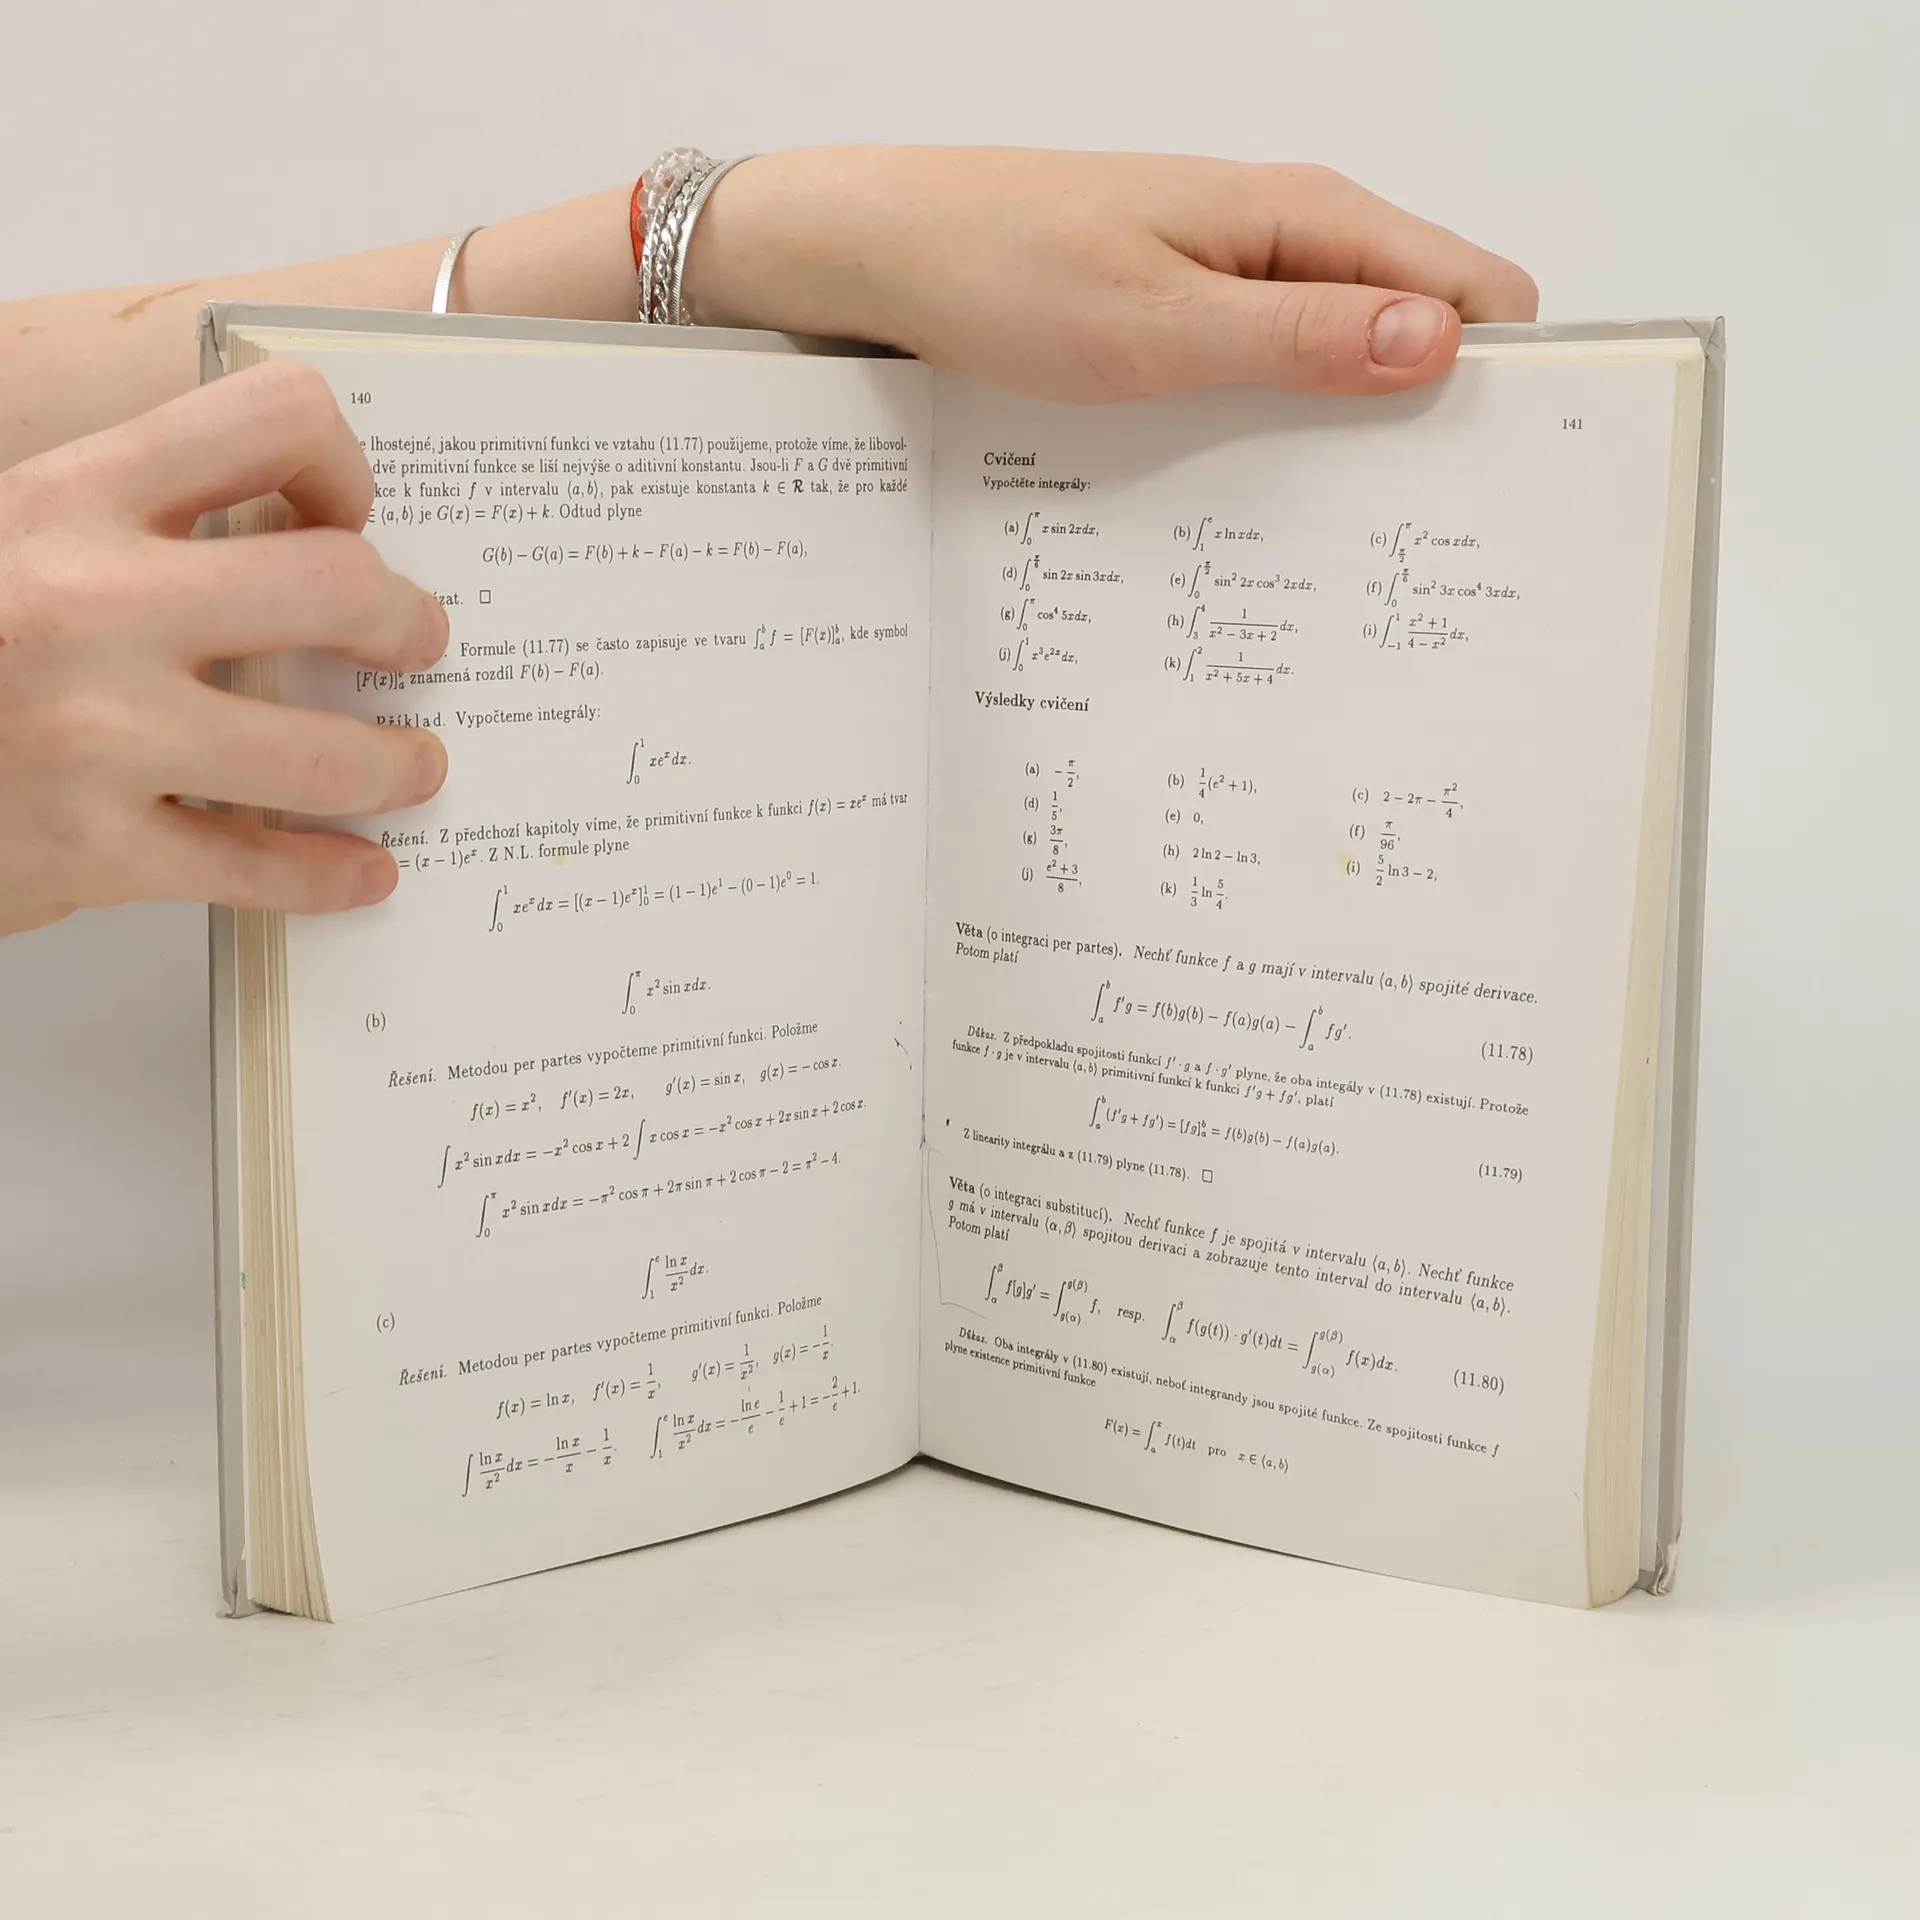 140
lhostejné, jakou primitivní funkci ve vztahu (11.77) použijeme, protože víme, že libovol-
dvě primitivní funkce se liší nejvýše o aditivní konstantu. Jsou-li F a G dvě primitivní
kce k funkci f v intervalu ⟨a, b⟩, pak existuje konstanta k ∈ R tak, že pro každé
∈ ⟨a, b⟩ je G(x) = F(x) + k. Odtud plyne
G(b) − G(a) = F(b) + k − F(a) − k = F(b) − F(a),
zat. □
Formule (11.77) se často zapisuje ve tvaru ∫_a^b f = [F(x)]_a^b, kde symbol
[F(x)]_a^b znamená rozdíl F(b) − F(a).
Příklad. Vypočteme integrály:
∫_0^1 xe^x dx.
Řešení. Z předchozí kapitoly víme, že primitivní funkce k funkci f(x) = xe^x má tvar
= (x − 1)e^x. Z N.L. formule plyne
∫_0^1 xe^x dx = [(x − 1)e^x]_0^1 = (1 − 1)e^1 − (0 − 1)e^0 = 1.
∫_0^π x^2 sin xdx.
(b)
Řešení. Metodou per partes vypočteme primitivní funkci. Položme
f(x) = x^2, f′(x) = 2x, g′(x) = sin x, g(x) = − cos x.
∫ x^2 sin xdx = −x^2 cos x + 2 ∫ x cos x = −x^2 cos x + 2x sin x + 2 cos x.
∫_0^π x^2 sin xdx = −π^2 cos π + 2π sin π + 2 cos π − 2 = π^2 − 4.
∫_1^e \frac{ln x}{x^2} dx.
(c)
Řešení. Metodou per partes vypočteme primitivní funkci. Položme
f(x) = ln x, f′(x) = \frac{1}{x}, g′(x) = \frac{1}{x^2}, g(x) = −\frac{1}{x}.
∫ \frac{ln x}{x^2} dx = −\frac{ln x}{x} − \frac{1}{x}. ∫_1^e \frac{ln x}{x^2} dx = −\frac{ln e}{e} − \frac{1}{e} + 1 = −\frac{2}{e} + 1.
141
Cvičení
Vypočtěte integrály:
(a) ∫_0^π x sin 2xdx, (b) ∫_1^e x ln xdx, (c) ∫_{\frac{π}{2}}^π x^2 cos xdx,
(d) ∫_0^{\frac{π}{6}} sin 2x sin 3xdx, (e) ∫_0^{\frac{π}{2}} sin^2 2x cos^3 2xdx, (f) ∫_0^{\frac{π}{6}} sin^2 3x cos^4 3xdx,
(g) ∫_0^π cos^4 5xdx, (h) ∫_3^4 \frac{1}{x^2 − 3x + 2} dx, (i) ∫_{−1}^1 \frac{x^2 + 1}{4 − x^2} dx,
(j) ∫_0^1 x^3 e^{2x} dx, (k) ∫_1^2 \frac{1}{x^2 + 5x + 4} dx.
Výsledky cvičení
(a) −\frac{π}{2}, (b) \frac{1}{4}(e^2 + 1), (c) 2 − 2π − \frac{π^2}{4},
(d) \frac{1}{5}, (e) 0, (f) \frac{π}{96},
(g) \frac{3π}{8}, (h) 2 ln 2 − ln 3, (i) \frac{5}{2} ln 3 − 2,
(j) \frac{e^2 + 3}{8}, (k) \frac{1}{3} ln \frac{5}{4}.
Věta (o integraci per partes). Nechť funkce f a g mají v intervalu ⟨a, b⟩ spojité derivace.
Potom platí
∫_a^b f′g = f(b)g(b) − f(a)g(a) − ∫_a^b fg′. (11.78)
Důkaz. Z předpokladu spojitosti funkcí f′ · g a f · g′ plyne, že oba integály v (11.78) existují. Protože
funkce f · g je v intervalu ⟨a, b⟩ primitivní funkcí k funkci f′g + fg′, platí
∫_a^b (f′g + fg′) = [fg]_a^b = f(b)g(b) − f(a)g(a). (11.79)
Z linearity integrálu a z (11.79) plyne (11.78). □
Věta (o integraci substitucí). Nechť funkce f je spojitá v intervalu ⟨a, b⟩. Nechť funkce
g má v intervalu ⟨α, β⟩ spojitou derivaci a zobrazuje tento interval do intervalu ⟨a, b⟩.
Potom platí
∫_α^β f[g]g′ = ∫_{g(α)}^{g(β)} f, resp. ∫_α^β f(g(t)) · g′(t)dt = ∫_{g(α)}^{g(β)} f(x)dx. (11.80)
Důkaz. Oba integrály v (11.80) existují, neboť integrandy jsou spojité funkce. Ze spojitosti funkce f
plyne existence primitivní funkce
F(x) = ∫_a^x f(t)dt pro x ∈ ⟨a, b⟩